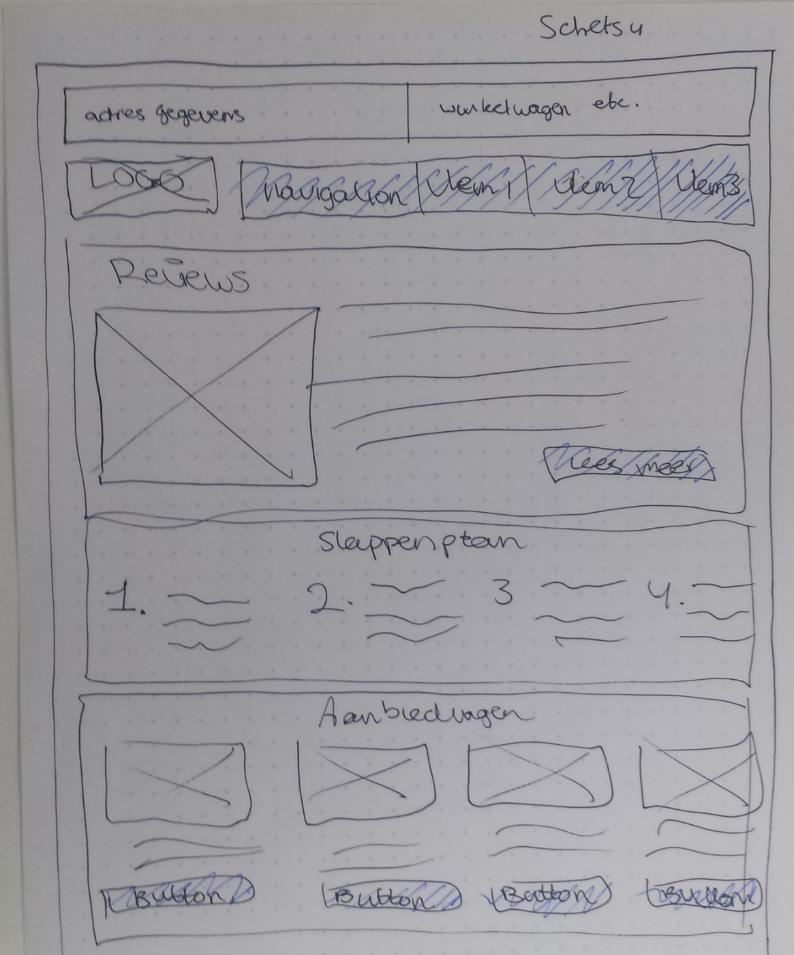 Schets 4
adres gegevens winkelwagen etc.
LOGO Navigation Item 1 Item 2 Item 3
Reviews
Lees meer
Stappenplan
1. 2. 3 4.
Aanbiedingen
Button Button Button Button